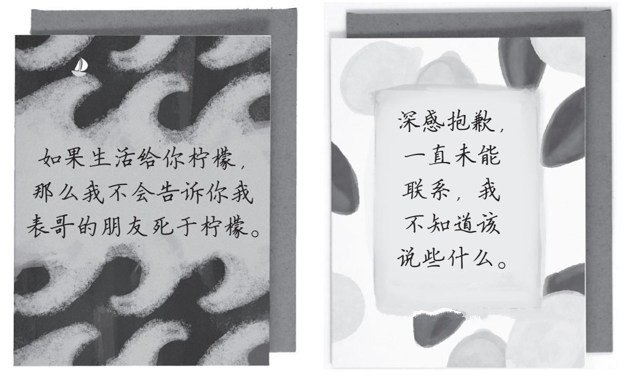 如果生活给你柠檬，
那么我不会告诉你我
表哥的朋友死于柠檬。
深感抱歉，
一直未能
联系，我
不知道该
说些什么。